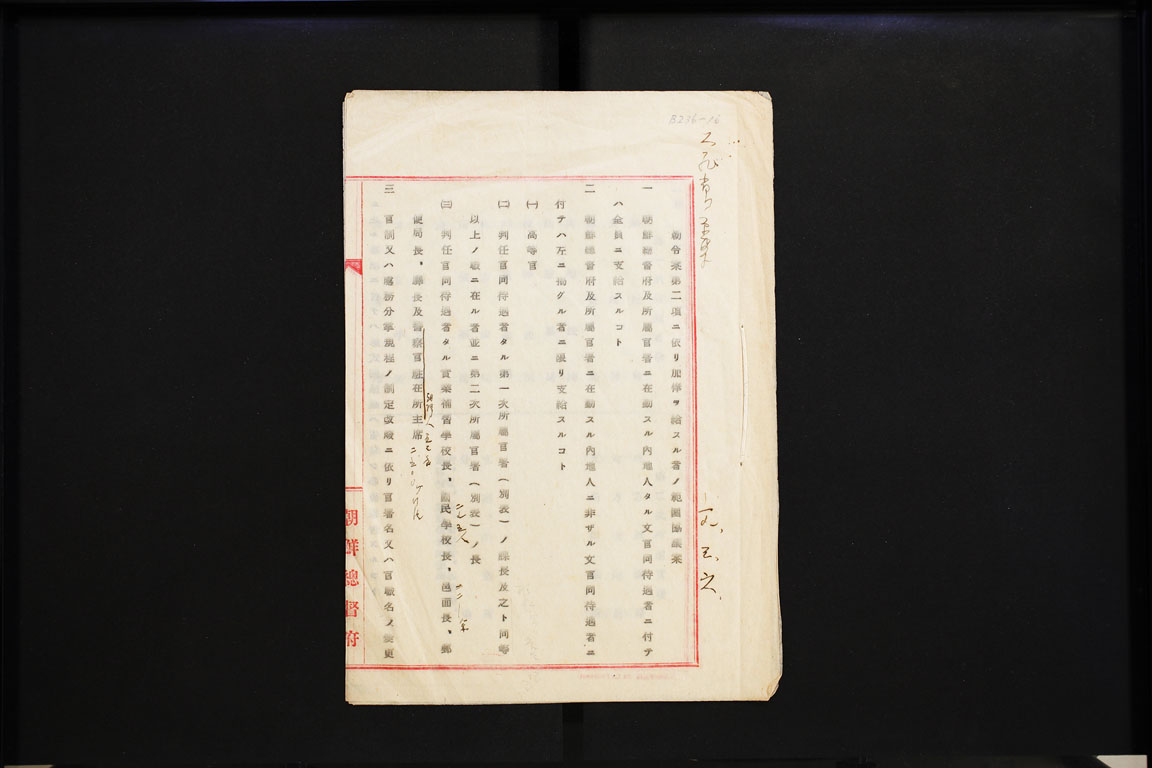 B236-16
勅令案第二項ニ依リ加俸ヲ給スル者ノ範圍協議案
一 朝鮮總督府及所屬官署ニ在勤スル內地人タル文官同待遇者ニ付テ
ハ全員ニ支給スルコト
二 朝鮮總督府及所屬官署ニ在勤スル內地人ニ非ザル文官同待遇者ニ
付テハ左ニ揭グル者ニ限リ支給スルコト
㈠ 高等官
㈡ 判任官同待遇者タル第一次所屬官署(別表)ノ課長及之ト同等
以上ノ職ニ在ル者並ニ第二次所屬官署(別表)ノ長
㈢ 判任官同待遇者タル實業補習學校長、國民學校長、邑面長、郵
便局長、驛長及警察官駐在所主席
三 官制又ハ事務分掌規程ノ制定改廢ニ依リ官署名又ハ官職名ノ變更
朝鮮總督府